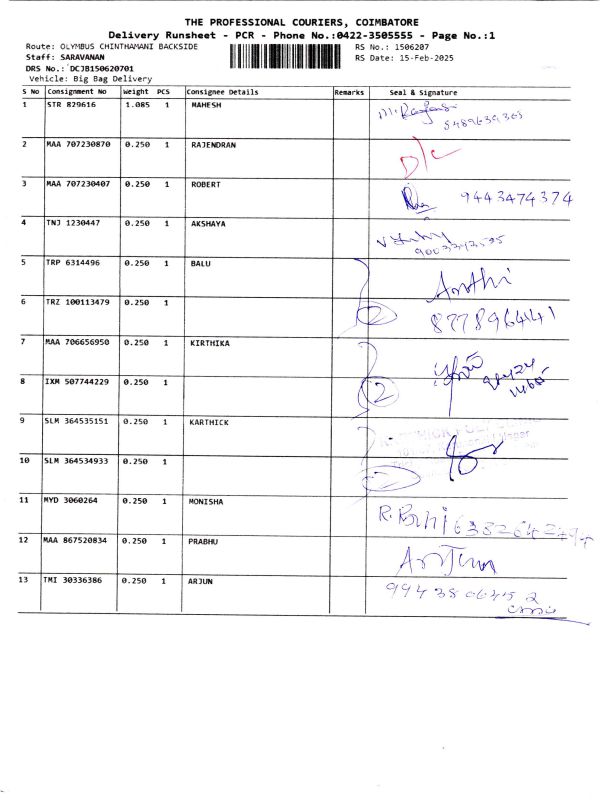 THE PROFESSIONAL COURIERS, COIMBATORE
Delivery Runsheet - PCR - Phone No.:0422-3505555 - Page No.:1
Route: OLYMBUS CHINTHAMANI BACKSIDE RS No.: 1506207
Staff: SARAVANAN RS Date: 15-Feb-2025
DRS No.: DCJB150620701
Vehicle: Big Bag Delivery
S No Consignment No Weight PCS Consignee Details Remarks Seal & Signature
1 STR 829616 1.085 1 MAHESH
2 MAA 707230870 0.250 1 RAJENDRAN D/C
3 MAA 707230407 0.250 1 ROBERT 9443474374
4 TNJ 1230447 0.250 1 AKSHAYA
5 TRP 6314496 0.250 1 BALU Arthi
6 TRZ 100113479 0.250 1 2 8778964141
7 MAA 706656950 0.250 1 KIRTHIKA
8 IXM 507744229 0.250 1 2
9 SLM 364535151 0.250 1 KARTHICK
10 SLM 364534933 0.250 1
11 MYD 3060264 0.250 1 MONISHA
12 MAA 867520834 0.250 1 PRABHU
13 TMI 30336386 0.250 1 ARJUN